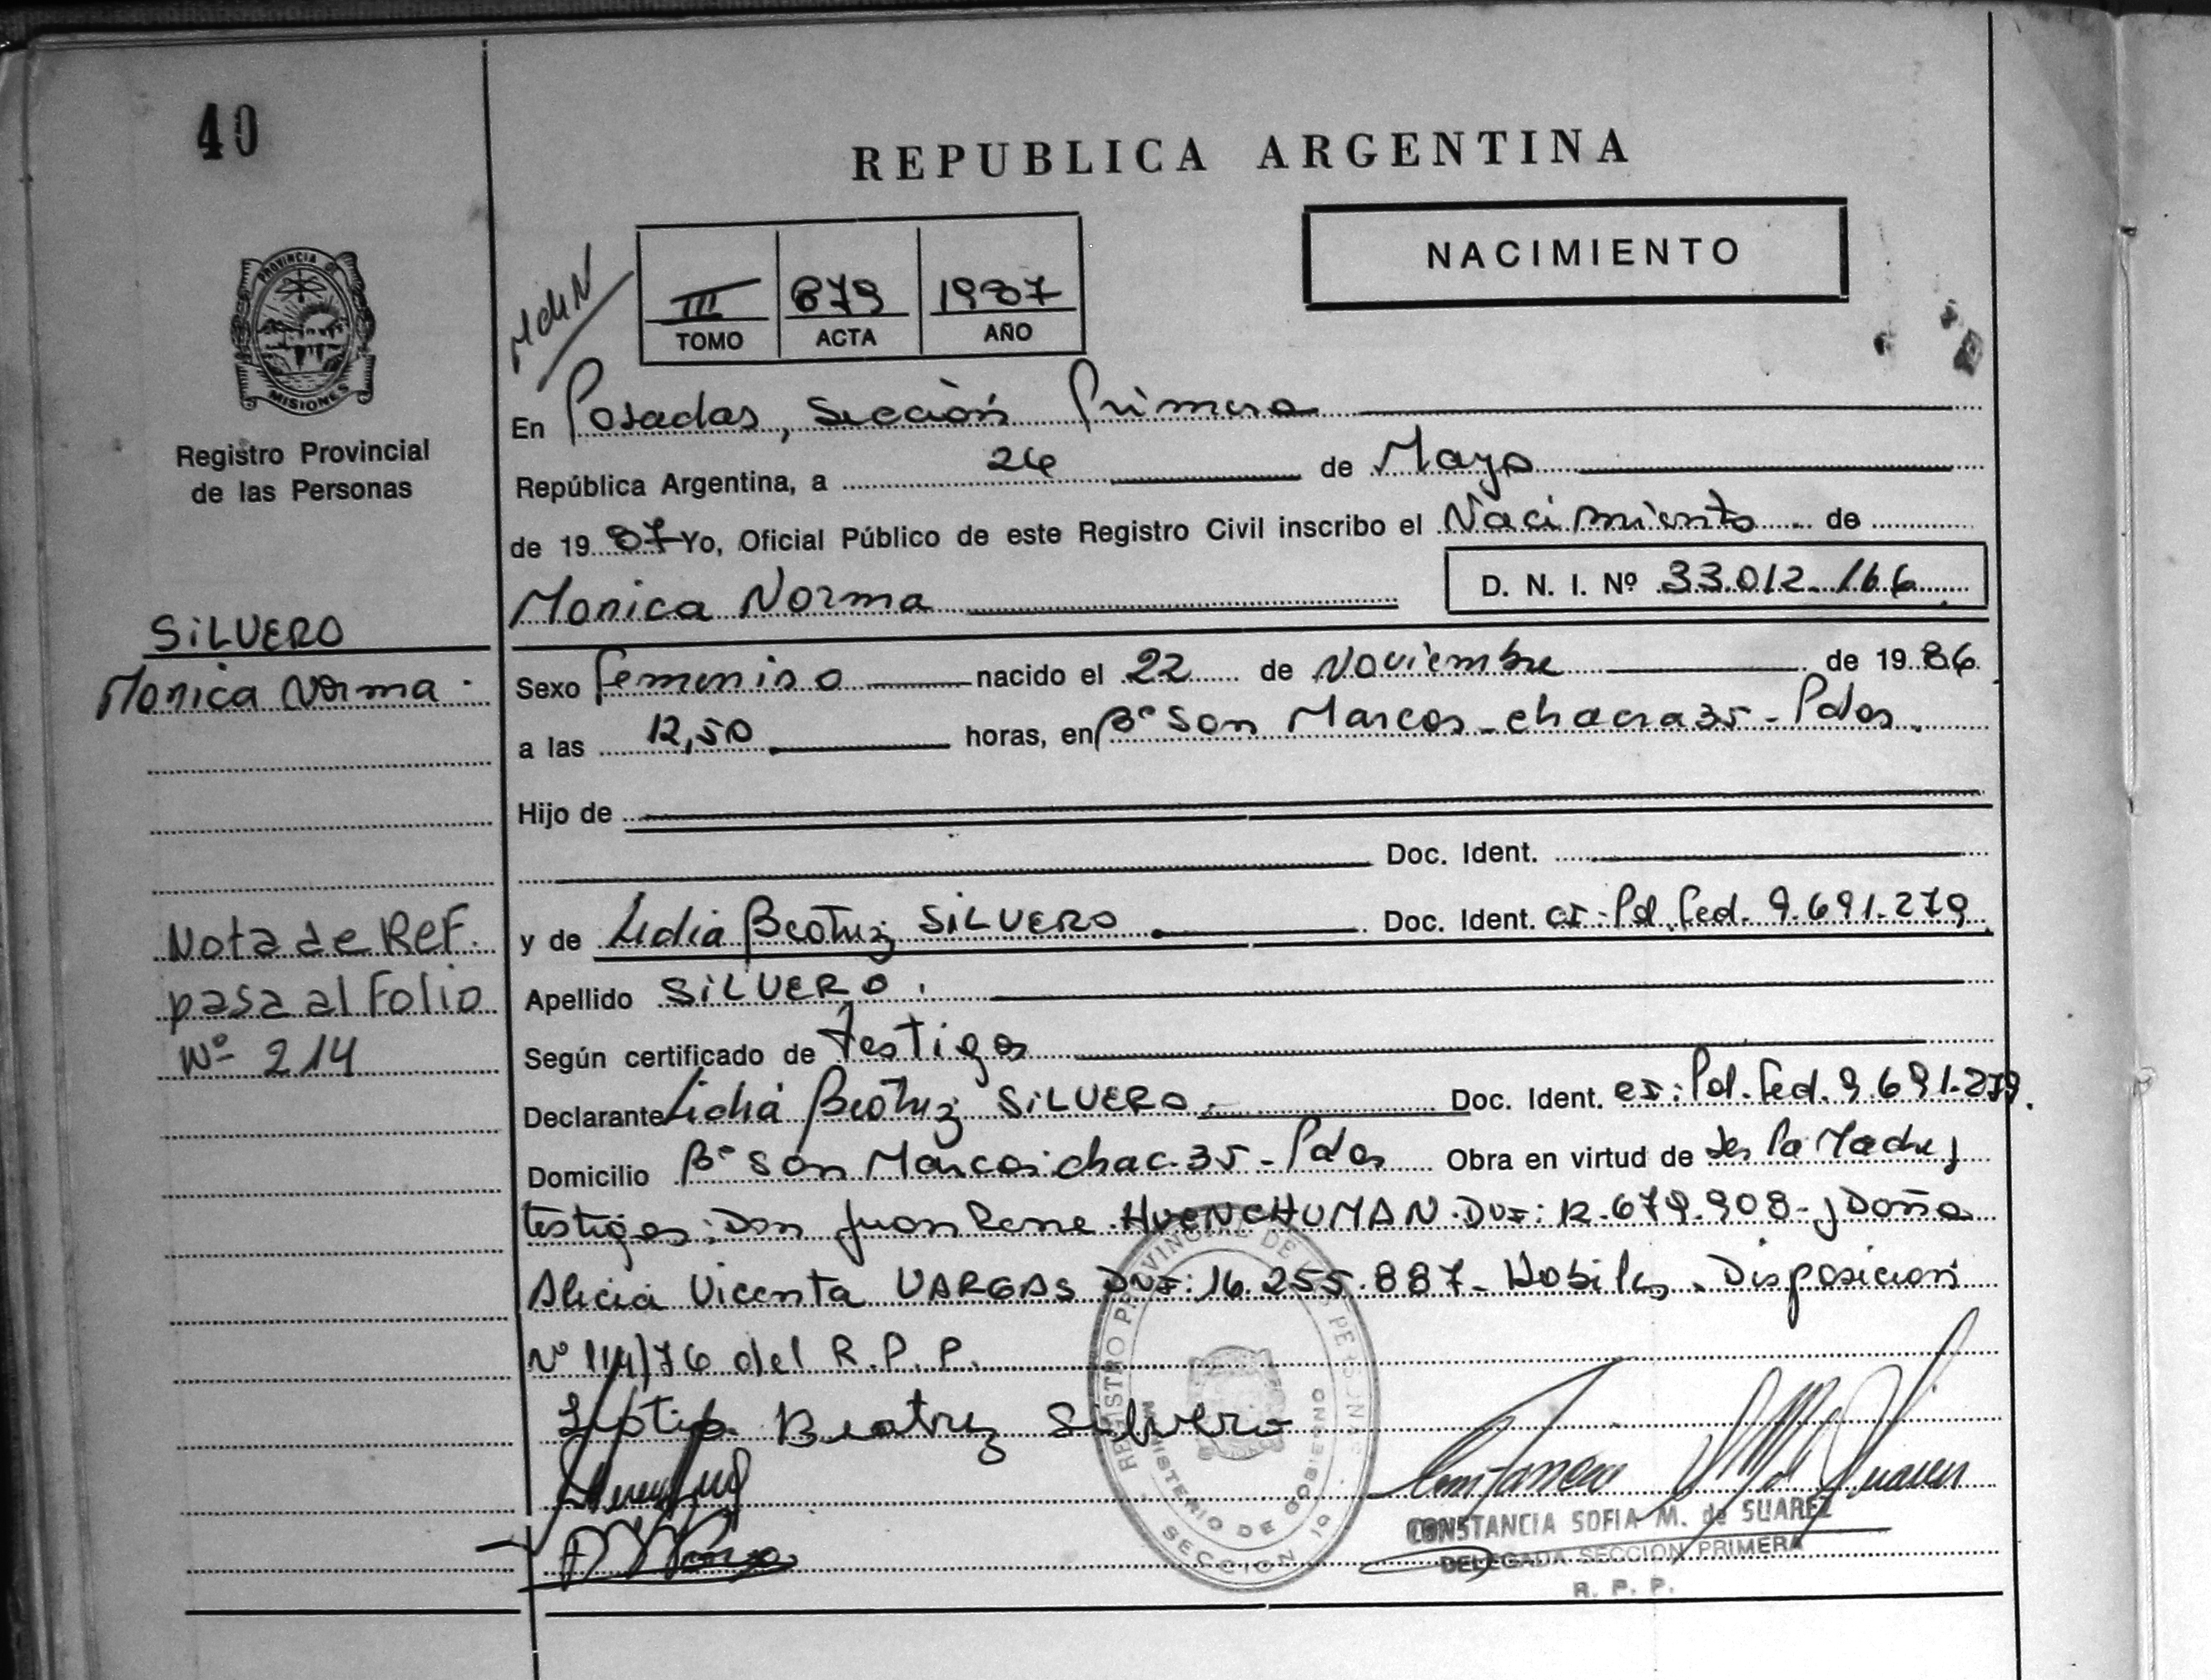 40
REPUBLICA ARGENTINA
NACIMIENTO
MdeN
III 679 1987
TOMO ACTA AÑO
PROVINCIA DE
MISIONES
Registro Provincial
de las Personas
En Posadas, Sección Primera
República Argentina, a 26 de Mayo
de 1987 Yo, Oficial Público de este Registro Civil inscribo el Nacimiento de
Monica Norma D. N. I. Nº 33.012.166
SILVERO
Monica Norma
Sexo femenino nacido el 22 de Noviembre de 1986
a las 12,50 horas, en Bº San Marcos - chacra 35 - Pdas.
Hijo de
Doc. Ident.
y de Lidia Beatriz SILVERO Doc. Ident. CI: Pol. Fed. 9.691.279
Nota de Ref.
pasa al Folio
Nº 214
Apellido SILVERO.
Según certificado de testigos
Declarante Lidia Beatriz SILVERO. Doc. Ident. CI: Pol. Fed. 9.691.279.
Domicilio Bº San Marcos: chac. 35 - Pdas Obra en virtud de ser la Madre y
testigos: Don Juan Rene HUENCHUMAN. DNI: 12.679.908 - y Doña
Alicia Vicenta VARGAS DNI: 16.255.887 - Hábiles. Disposición
Nº 114/76 del R. P. P.
Beatriz Silvero
REGISTRO PROVINCIAL DE LAS PERSONAS
MINISTERIO DE GOBIERNO
SECCION 1ª
CONSTANCIA SOFIA M. de SUAREZ
DELEGADA SECCION PRIMERA
R. P. P.